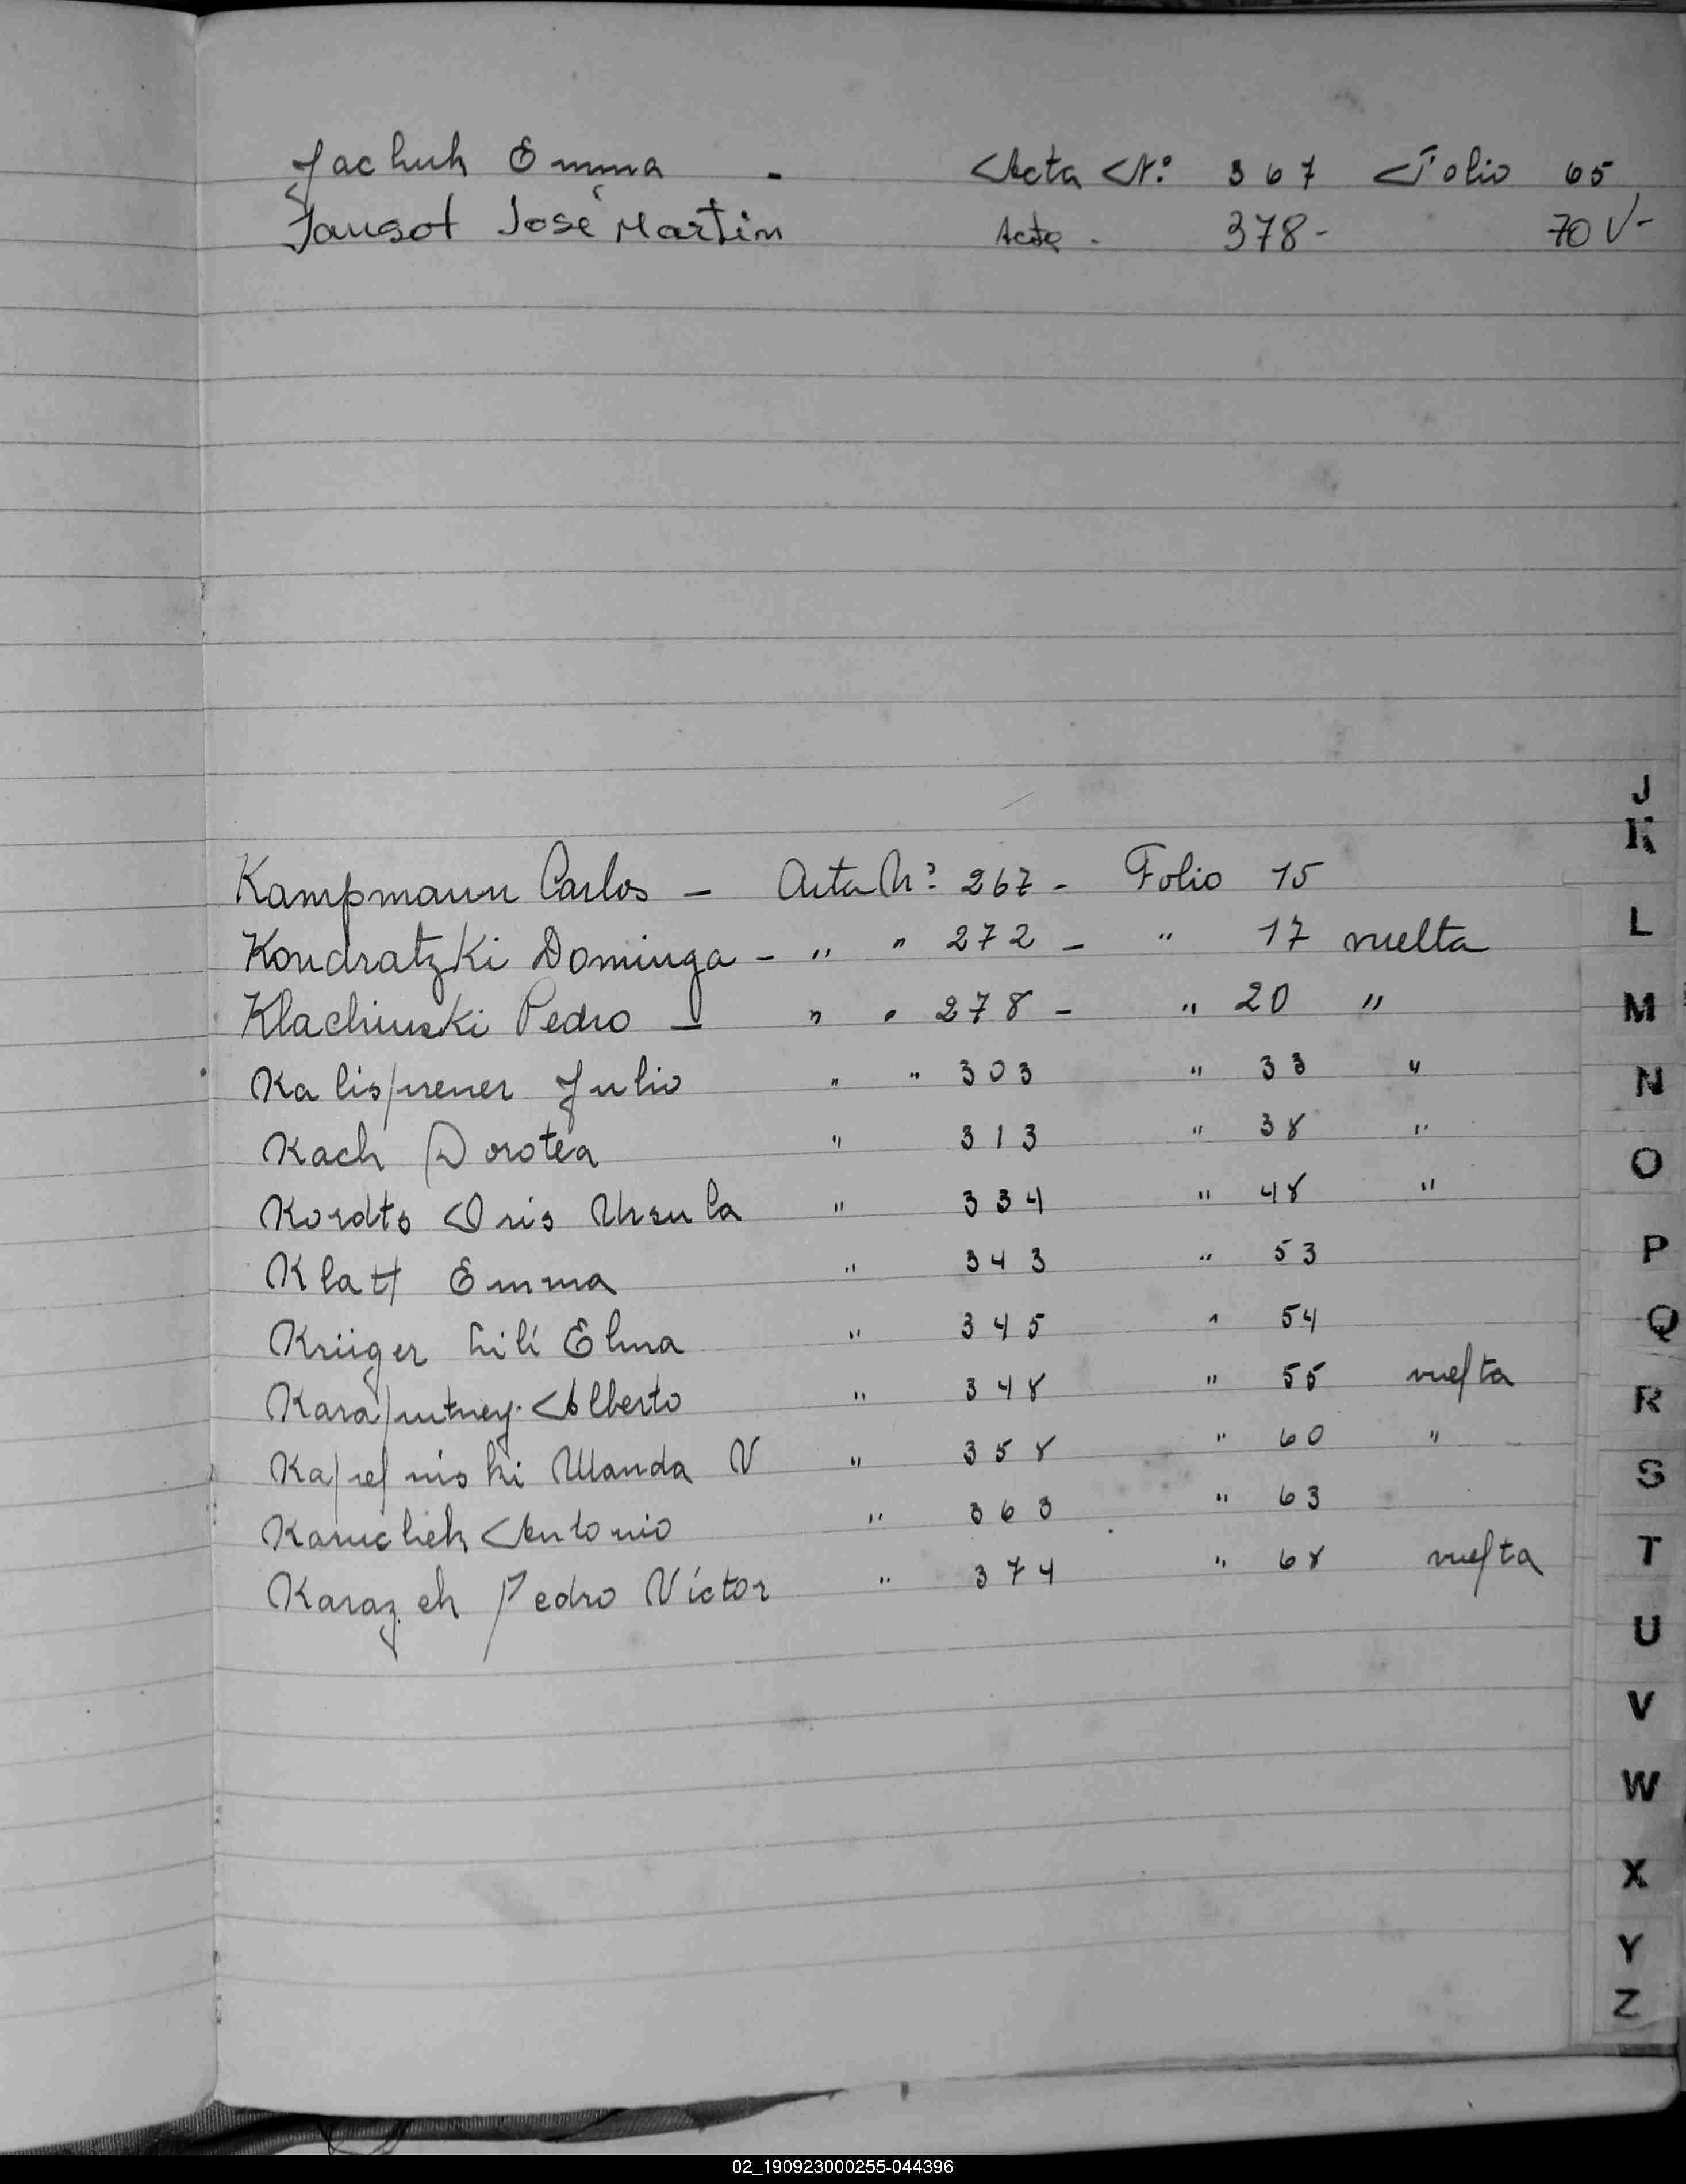 Jachuk Emma - Acta N.º 367 Folio 65
Jausot José Martin Acta - 378 - 70 V -
J
K
Kampmann Carlos - Acta Nº 267 - Folio 15
L
Kondratzki Dominga - " " 272 - " 17 vuelta
Klachinski Pedro - " " 278 - " 20 "
M
Kalispener Julio " " 303 " 33 "
N
Kach Dorotea " 313 " 38 "
O
Kordts Iris Ursula " 334 " 48 "
Klatt Emma " 343 " 53
P
Krüger Lilí Elma " 345 " 54
Q
Karaputney Alberto " 348 " 55 vuelta
R
Wanda V " 358 " 60 "
S
Antonio " 363 " 63
Karazek Pedro Víctor " 374 " 68 vuelta
T
U
V
W
X
Y
Z
02_190923000255-044396